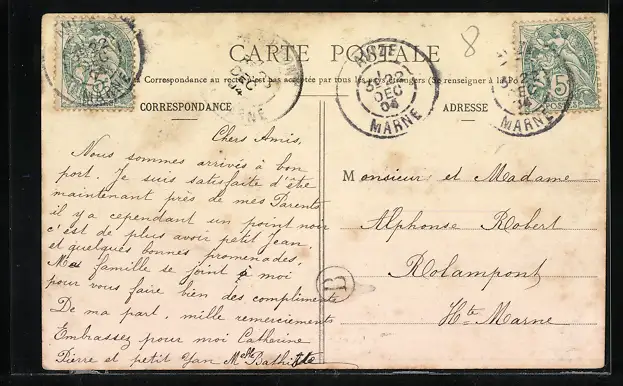 CARTE POSTALE
8
La Correspondance au recto n'est pas acceptée par tous les pays étrangers (Se renseigner à la Poste)
CORRESPONDANCE
ADRESSE
22
DEC
MARNE
22
DEC
04
MARNE
22
DEC
04
MARNE
5
POSTES
Chers Amis,
Nous sommes arrivés à bon
port. Je suis satisfaite d'être
maintenant près de mes Parents
il y a cependant un point noir
c'est de plus avoir petit Jean,
et quelques bonnes promenades,
Ma famille se joint à moi
pour vous faire bien des compliments
De ma part, mille remerciements
Embrassez pour moi Catherine
Pierre et petit Jan Melle
Monsieur et Madame
Alphonse Robert
Rolampont
Hte Marne
B